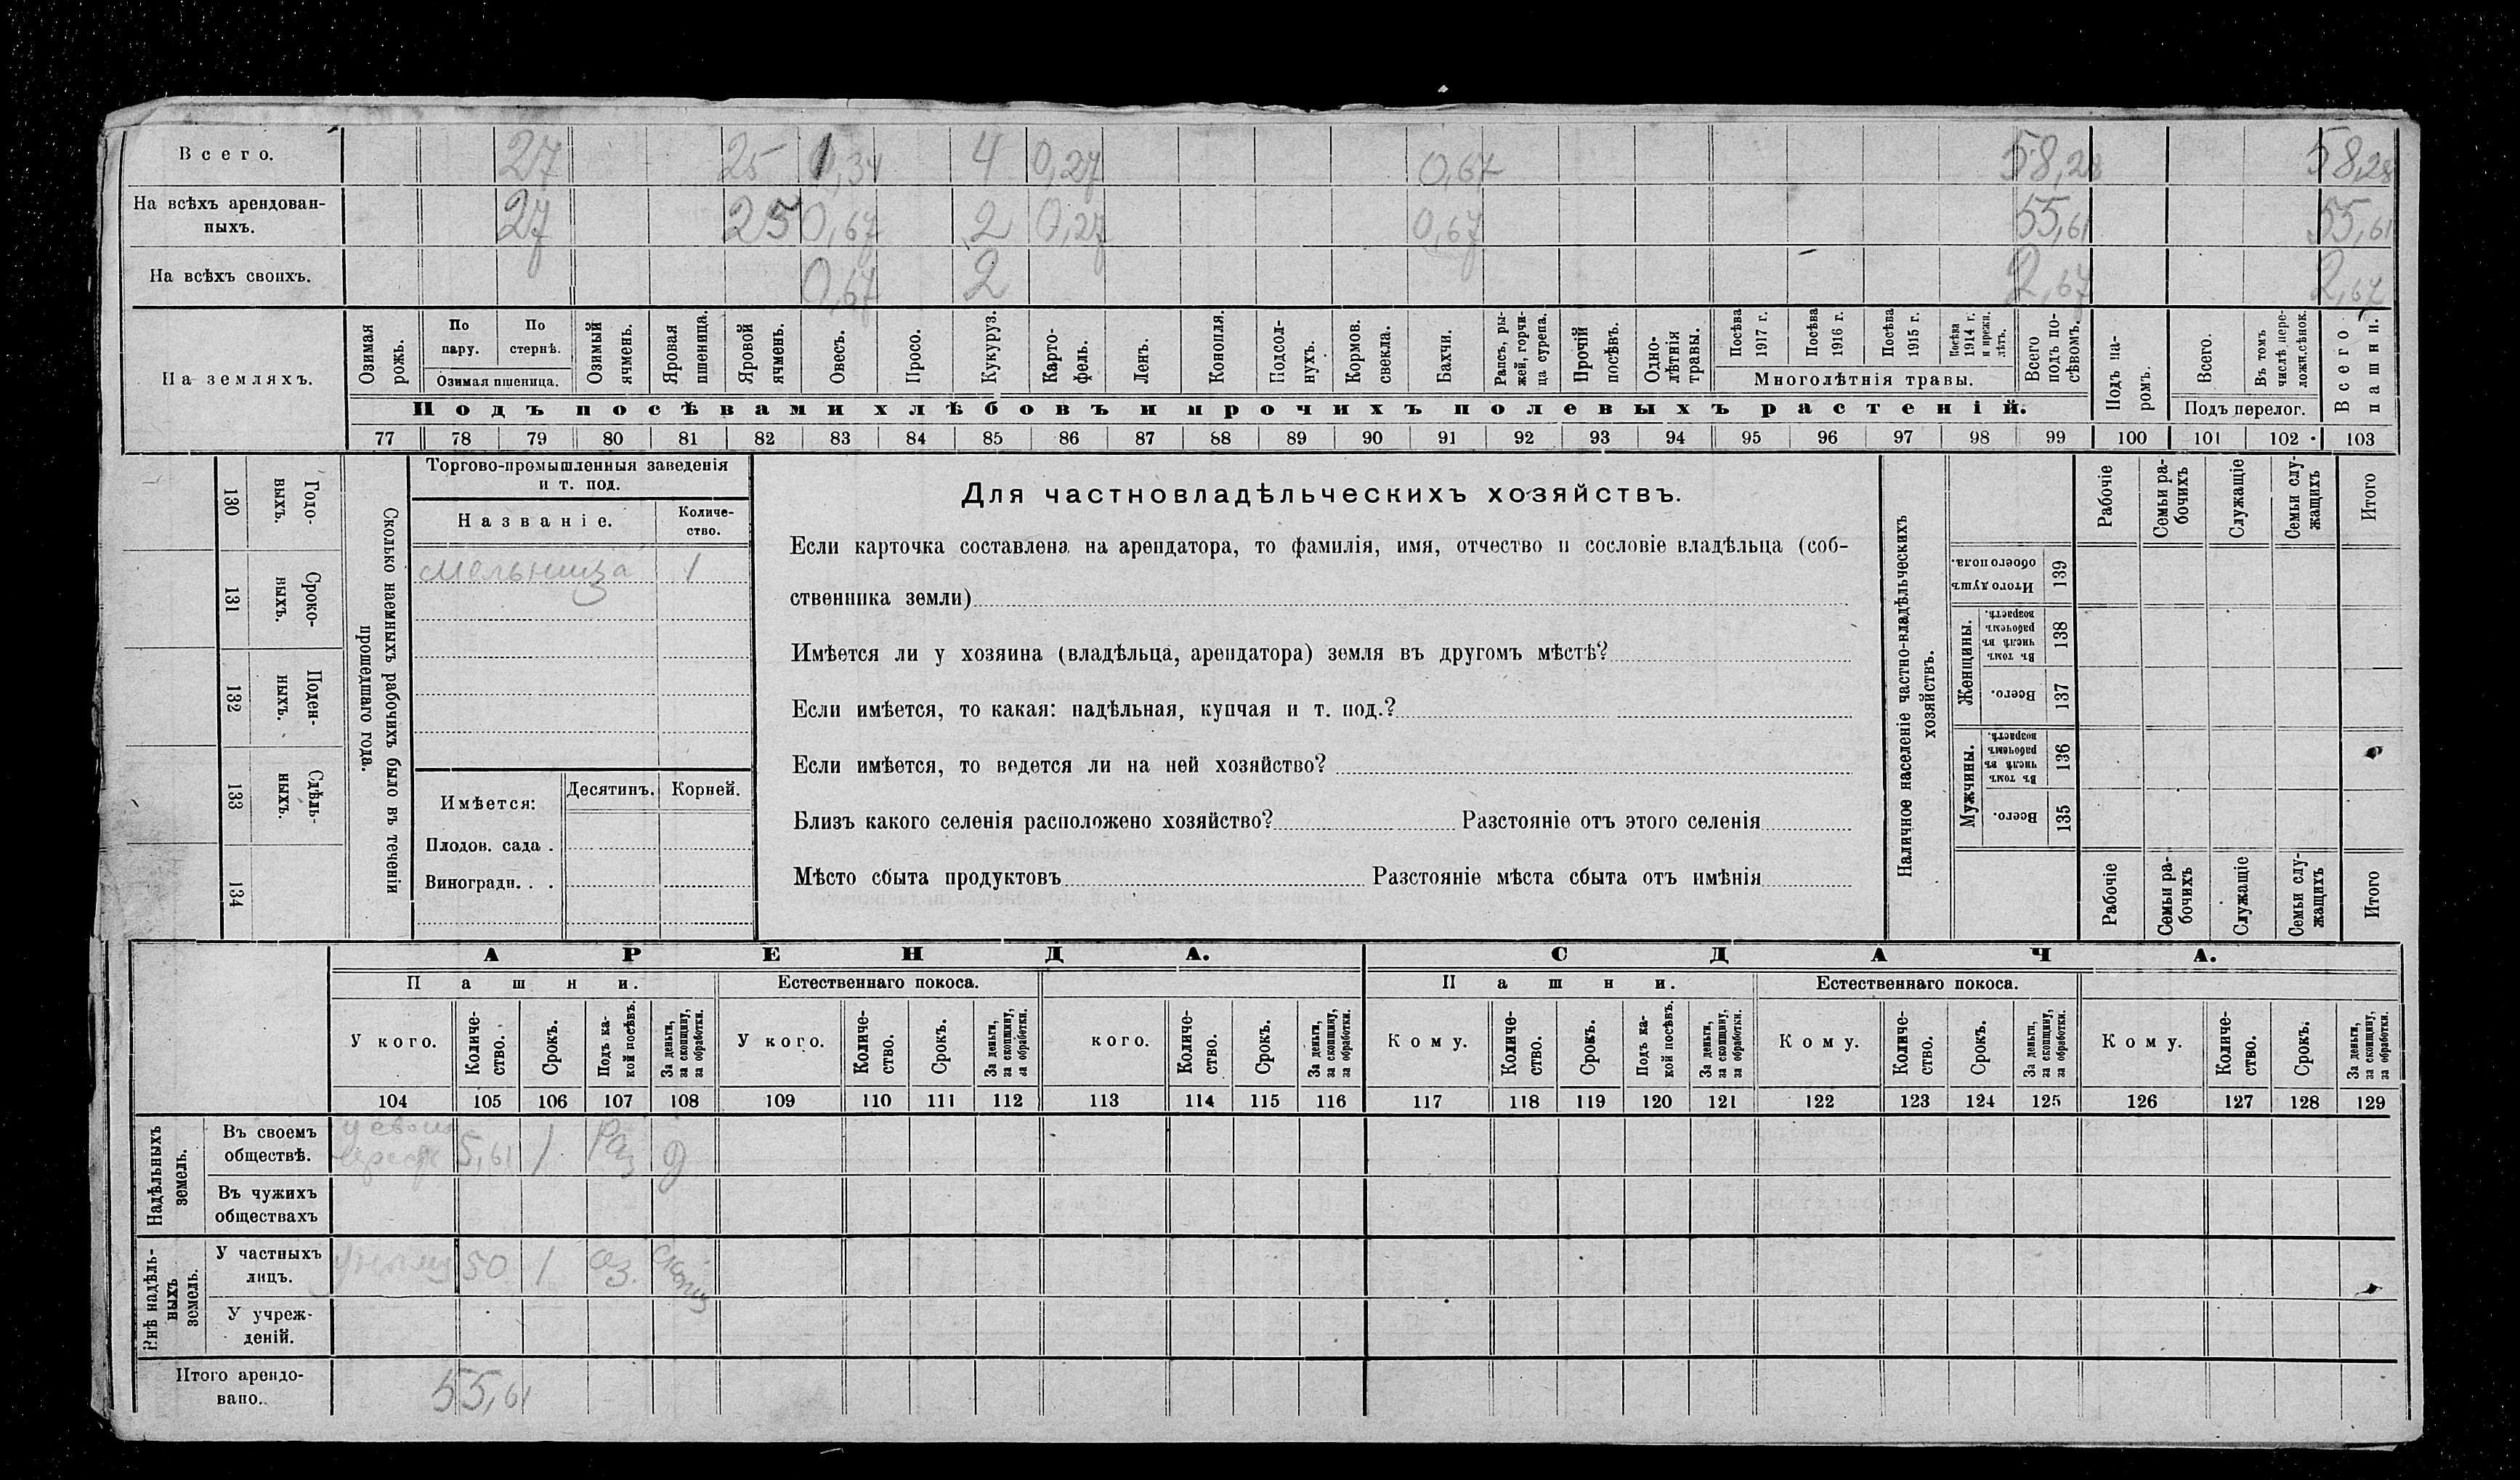 Всего. 27 25 1,34 4 0,27 0,67 58,28 58,28
На всѣхъ арендован-
ныхъ. 27 25 0,67 2 0,27 0,67 55,61 55,61
На всѣхъ своихъ. 0,67 2 2,67 2,67
На земляхъ.
Озимая рожь.
По пару.
По стернѣ.
Озимая пшеница.
Озимый ячмень.
Яровая пшеница.
Яровой ячмень.
Овесъ.
Просо.
Кукуруз.
Карто-
фель.
Ленъ.
Конопля.
Подсол-
нухъ.
Кормов.
свекла.
Бахчи.
Рапсъ, ры-
жей, горчи-
ца сурепа.
Прочій посѣвъ.
Одно-
лѣтнія
травы.
Посѣва 1917 г.
Посѣва 1916 г.
Посѣва 1915 г.
Посѣва 1914 г. и прежн. лѣтъ.
Многолѣтнія травы.
Всего подъ по-
сѣвомъ.
Подъ посѣвами хлѣбовъ и прочихъ полевыхъ растеній.
Подъ па-
ромъ.
Всего.
Въ томъ числѣ пере-
ложн. сѣнок.
Подъ перелог.
Всего пашни.
77 78 79 80 81 82 83 84 85 86 87 88 89 90 91 92 93 94 95 96 97 98 99 100 101 102 103
130 Годо-
выхъ.
131 Сроко-
ныхъ.
132 Поден-
ныхъ.
133 Сдѣль-
ныхъ.
134
Сколько наемныхъ рабочихъ было въ теченіи
прошедшаго года.
Торгово-промышленныя заведенія
и т. под.
Названіе. Количе-
ство.
мельница 1
Имѣется: Десятинъ. Корней.
Плодов. сада .
Виноградн. . .
Для частновладѣльческихъ хозяйствъ.
Если карточка составлена на арендатора, то фамилія, имя, отчество и сословіе владѣльца (соб-
ственника земли)
Имѣется ли у хозяина (владѣльца, арендатора) земля въ другомъ мѣстѣ?
Если имѣется, то какая: надѣльная, купчая и т. под.?
Если имѣется, то ведется ли на ней хозяйство?
Близъ какого селенія расположено хозяйство? Разстояніе отъ этого селенія
Мѣсто сбыта продуктовъ Разстояніе мѣста сбыта отъ имѣнія
Наличное населеніе частно-владѣльческихъ
хозяйствъ.
Рабочіе
Семьи ра-
бочихъ
Служащіе
Семьи слу-
жащихъ
Итого
Итого душъ обоего пола. 139
Женщины.
Въ томъ числѣ въ рабочемъ возрастѣ. 138
Всего. 137
Мужчины.
Въ томъ числѣ въ рабочемъ возрастѣ. 136
Всего. 135
Рабочіе
Семьи ра-
бочихъ
Служащіе
Семьи слу-
жащихъ
Итого
АРЕНДА. СДАЧА.
Пашни. Естественнаго покоса. Пашни. Естественнаго покоса.
У кого.
Количе-
ство.
Срокъ.
Подъ ка-
кой посѣвъ.
За деньги,
за скопщину,
за обработки.
У кого.
Количе-
ство.
Срокъ.
За деньги,
за скопщину,
за обработки.
кого.
Количе-
ство.
Срокъ.
За деньги,
за скопщину,
за обработки.
Кому.
Количе-
ство.
Срокъ.
Подъ ка-
кой посѣвъ.
За деньги,
за скопщину,
за обработки.
Кому.
Количе-
ство.
Срокъ.
За деньги,
за скопщину,
за обработки.
Кому.
Количе-
ство.
Срокъ.
За деньги,
за скопщину,
за обработки.
104 105 106 107 108 109 110 111 112 113 114 115 116 117 118 119 120 121 122 123 124 125 126 127 128 129
Надѣльныхъ
земель.
Въ своемъ
обществѣ. 5,61 1 Раз д
Въ чужихъ
обществахъ
Внѣ надѣль-
ныхъ
земель.
У частныхъ
лицъ. 50 1 оз.
У учреж-
деній.
Итого арендо-
вано. 55,61